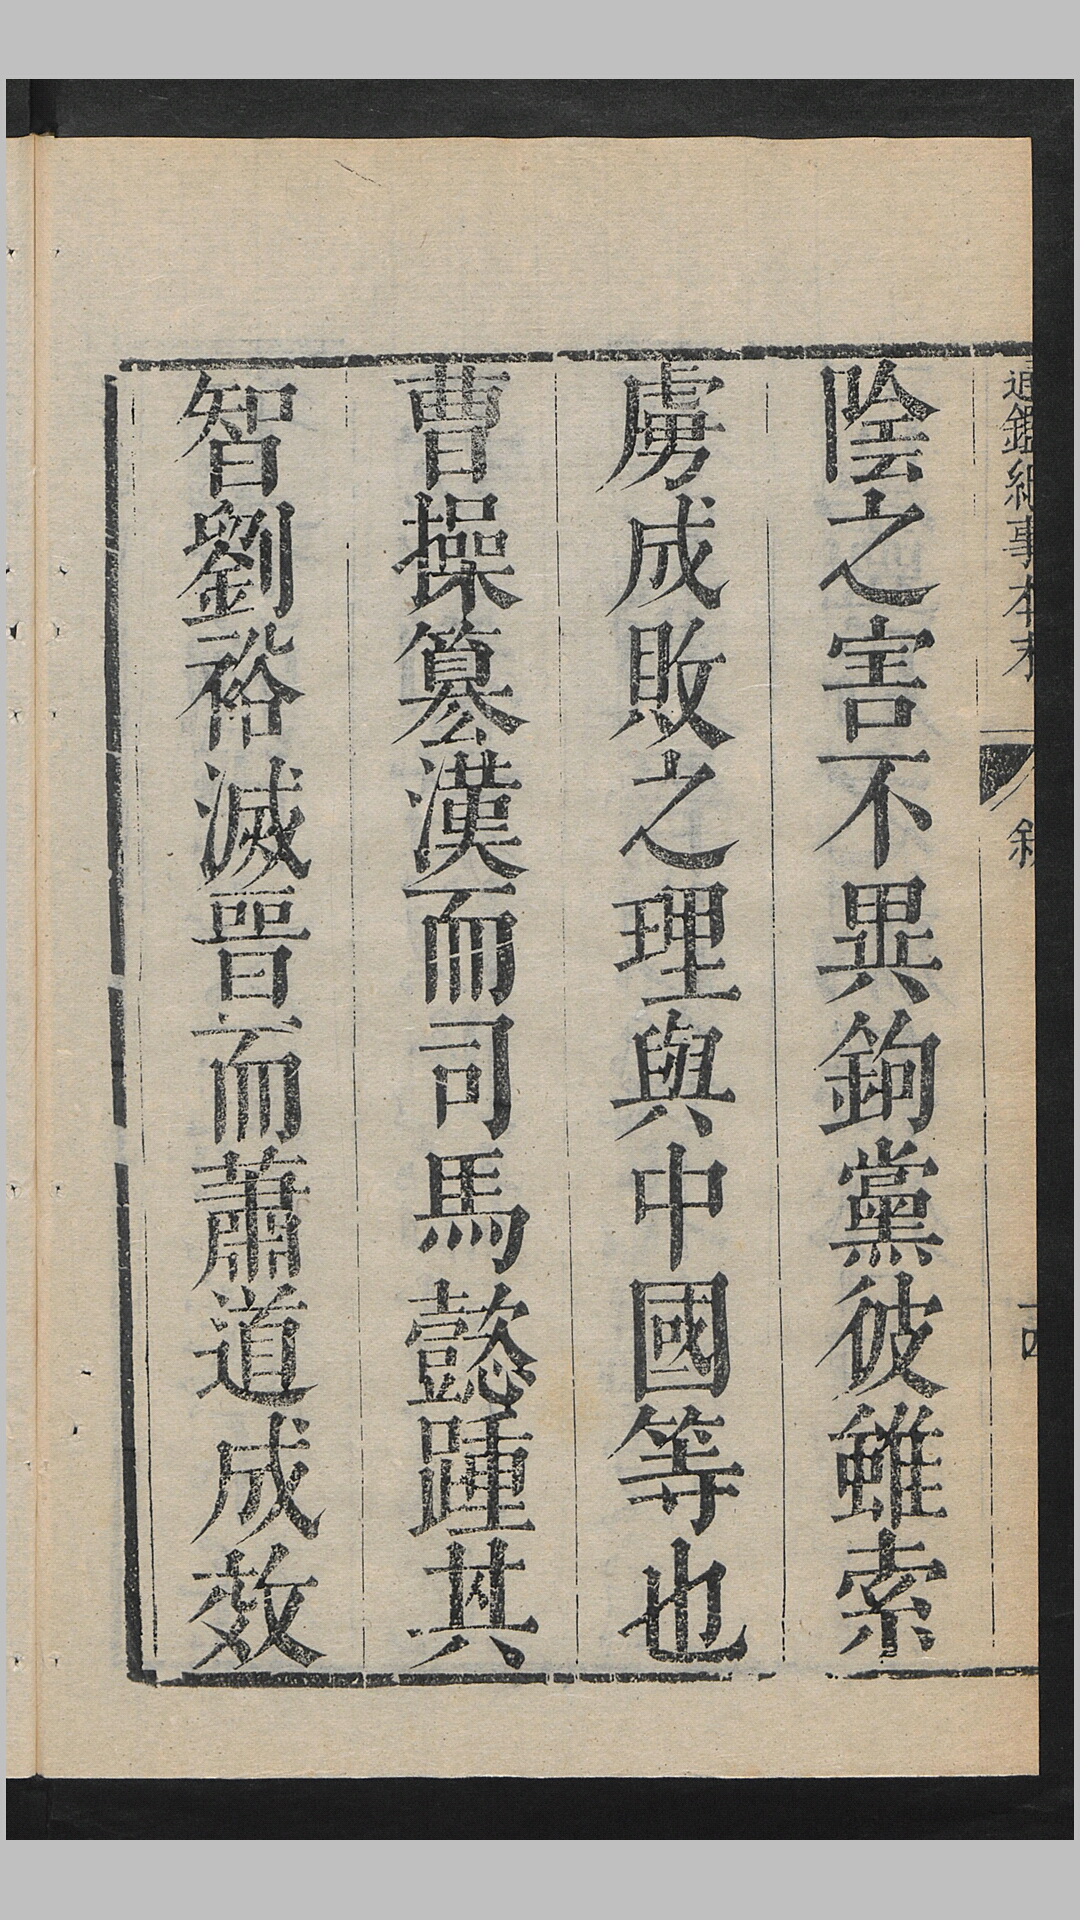 通鑑紀事本末
敘
十四
陰之害不異鉤黨彼雖索
虜成敗之理與中國等也
曹操篡漢而司馬懿踵其
智劉裕滅晉而蕭道成效